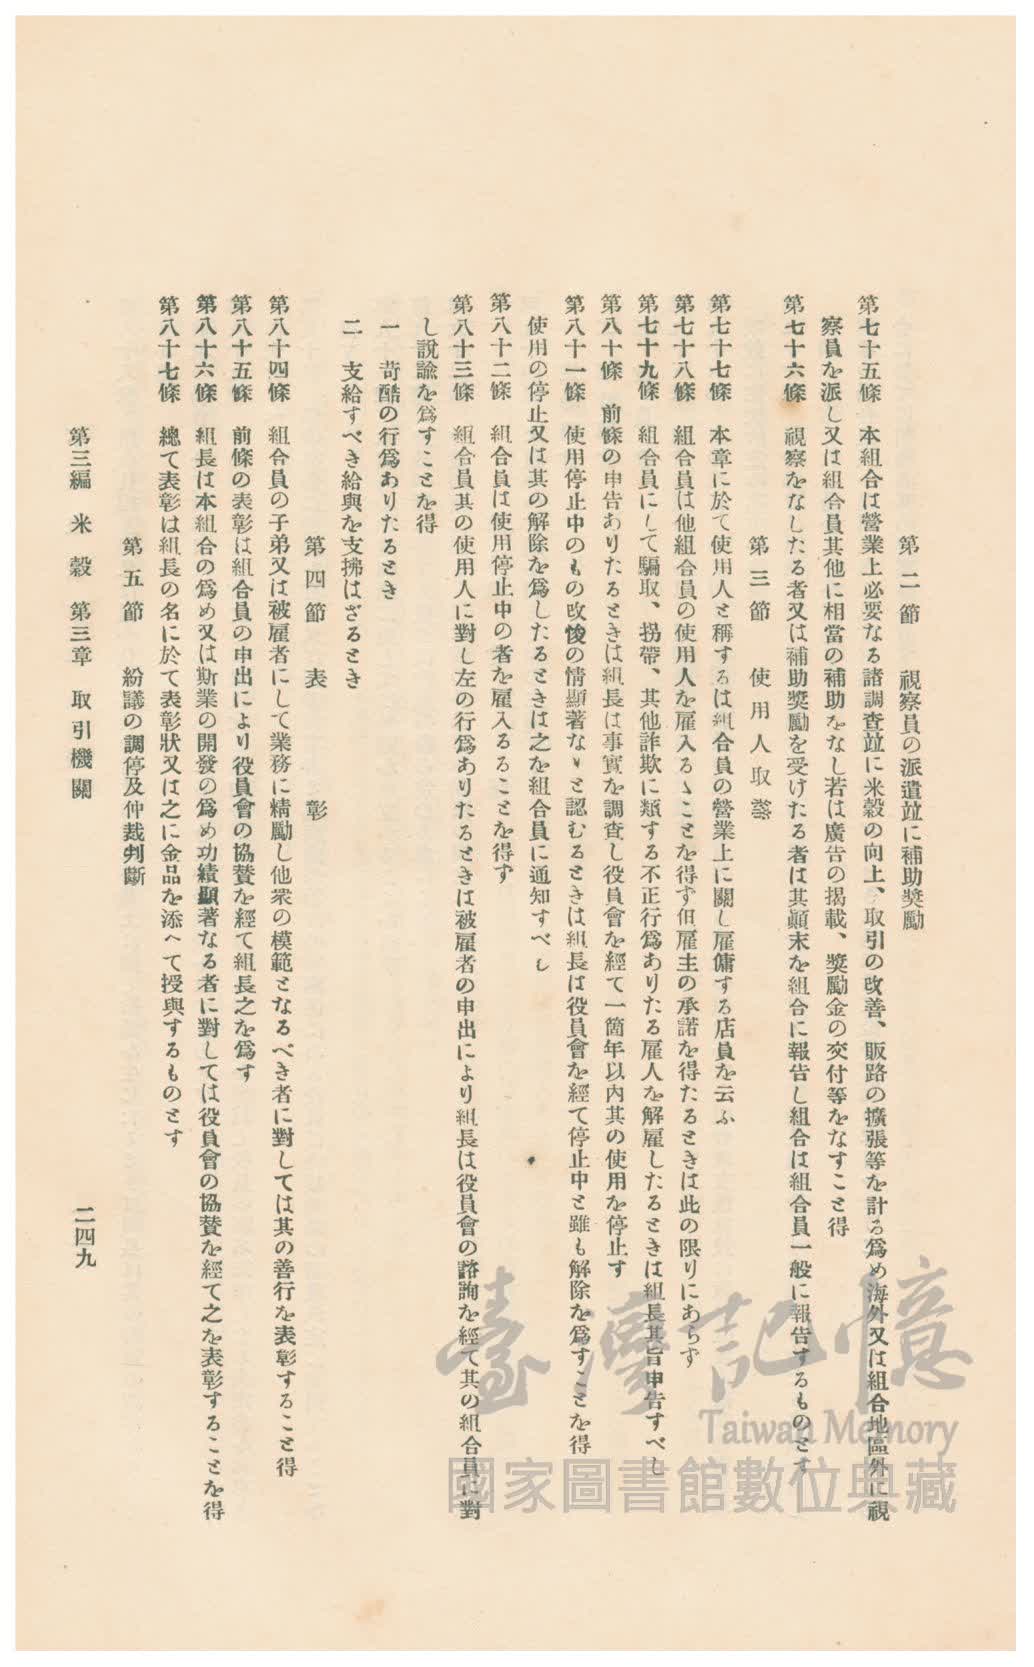 第二節　視察員の派遣竝に補助奬勵
第七十五條　本組合は營業上必要なる諸調査竝に米穀の向上、取引の改善、販路の擴張等を計る爲め海外又は組合地區外に視
察員を派し又は組合員其他に相當の補助をなし若は廣告の揭載、奬勵金の交付等をなすこと得
第七十六條　視察をなしたる者又は補助奬勵を受けたる者は其顚末を組合に報告し組合は組合員一般に報告するものとす
第三節　使用人取
第七十七條　本章に於て使用人と稱するは組合員の營業上に關し雇傭する店員を云ふ
第七十八條　組合員は他組合員の使用人を雇入るゝことを得ず但雇主の承諾を得たるときは此の限りにあらず
第七十九條　組合員にして騙取、拐帶、其他詐欺に類する不正行爲ありたる雇人を解雇したるときは組長其旨申告すべし
第八十條　前條の申告ありたるときは組長は事實を調査し役員會を經て一箇年以內其の使用を停止す
第八十一條　使用停止中のもの改悛の情顯著なりと認むるときは組長は役員會を經て停止中と雖も解除を爲すことを得
使用の停止又は其の解除を爲したるときは之を組合員に通知すべし
第八十二條　組合員は使用停止中の者を雇入るることを得ず
第八十三條　組合員其の使用人に對し左の行爲ありたるときは被雇者の申出により組長は役員會の諮詢を經て其の組合員に對
し說諭を爲すことを得
一　苛酷の行爲ありたるとき
二　支給すべき給與を支拂はざるとき
第四節　表彰
第八十四條　組合員の子弟又は被雇者にして業務に精勵し他衆の模範となるべき者に對しては其の善行を表彰すること得
第八十五條　前條の表彰は組合員の申出により役員會の協贊を經て組長之を爲す
第八十六條　組長は本組合の爲め又は斯業の開發の爲め功績顯著なる者に對しては役員會の協贊を經て之を表彰することを得
第八十七條　總て表彰は組長の名に於て表彰狀又は之に金品を添へて授與するものとす
第五節　紛議の調停及仲裁判斷
第三編　米穀　第三章　取引機關
二四九
臺灣記憶
Taiwan Memory
國家圖書館數位典藏